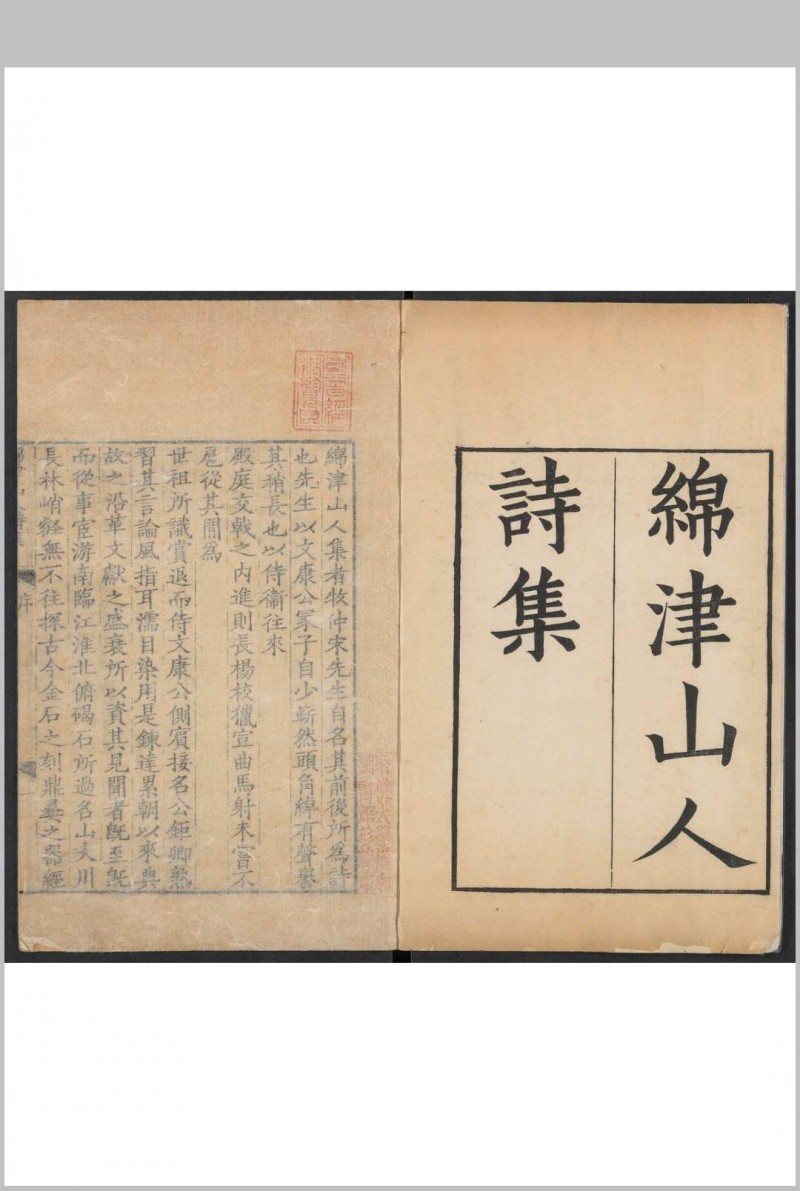 綿津山人
詩集
綿津山人集者牧仲宋先生自名其前後所為詩
也先生以文康公冢子自少嶄然頭角綽有聲譽
其稍長也以侍衞往來
殿庭交戟之內進則長楊校獵宣曲馬射未嘗不
扈從其間為
世祖所識賞退而侍文康公側賓接名公鉅卿熟
習其言論風指耳濡目染用是鍊達累朝以來典
故之沿革文獻之盛衰所以資其見聞者旣至旣
而從事宦游南臨江淮北俯碣石所過名山大川
長林峭壑無不往探古今金石之刻鼎彝之器經
序